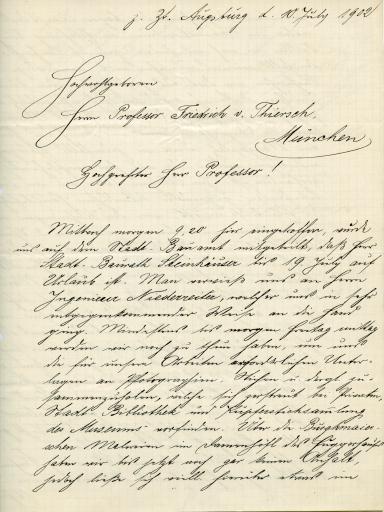 z. Zt. Augsburg d. 10. July 1902
Hochwohlgeboren
Herrn Professor Friedrich v. Thiersch,
München
Hochgeehrter Herr Professor!
Mittwoch morgen 9,20 hier eingetroffen, wurde
uns auf dem Stadt-Bauamt mitgeteilt, daß Herr
Stadt-Baurath Steinhäuser bis 19 July auf
Urlaub ist. Man verwies uns an Herrn
Ingenieur Niederreiter, welcher uns in sehr
entgegenkommender Weise an die Hand
ging. Mindestens bis morgen Freitag mittag
werden wir noch zu thun haben, um uns
die für unsere Arbeiten erforderlichen Unter-
lagen an Photographien, Stichen u. dergl. zu-
sammenzuholen, welche sich zerstreut bei Privaten,
Stadt-Bibliothek und Kupferstichsammlung
des Museums vorfinden. Über die Burgkmair-
schen Malereien im Damenhöfl des Fuggerhauses
haben wir bis jetzt noch gar keinen Anhalt,
jedoch ließe sich viell. hierüber etwas im